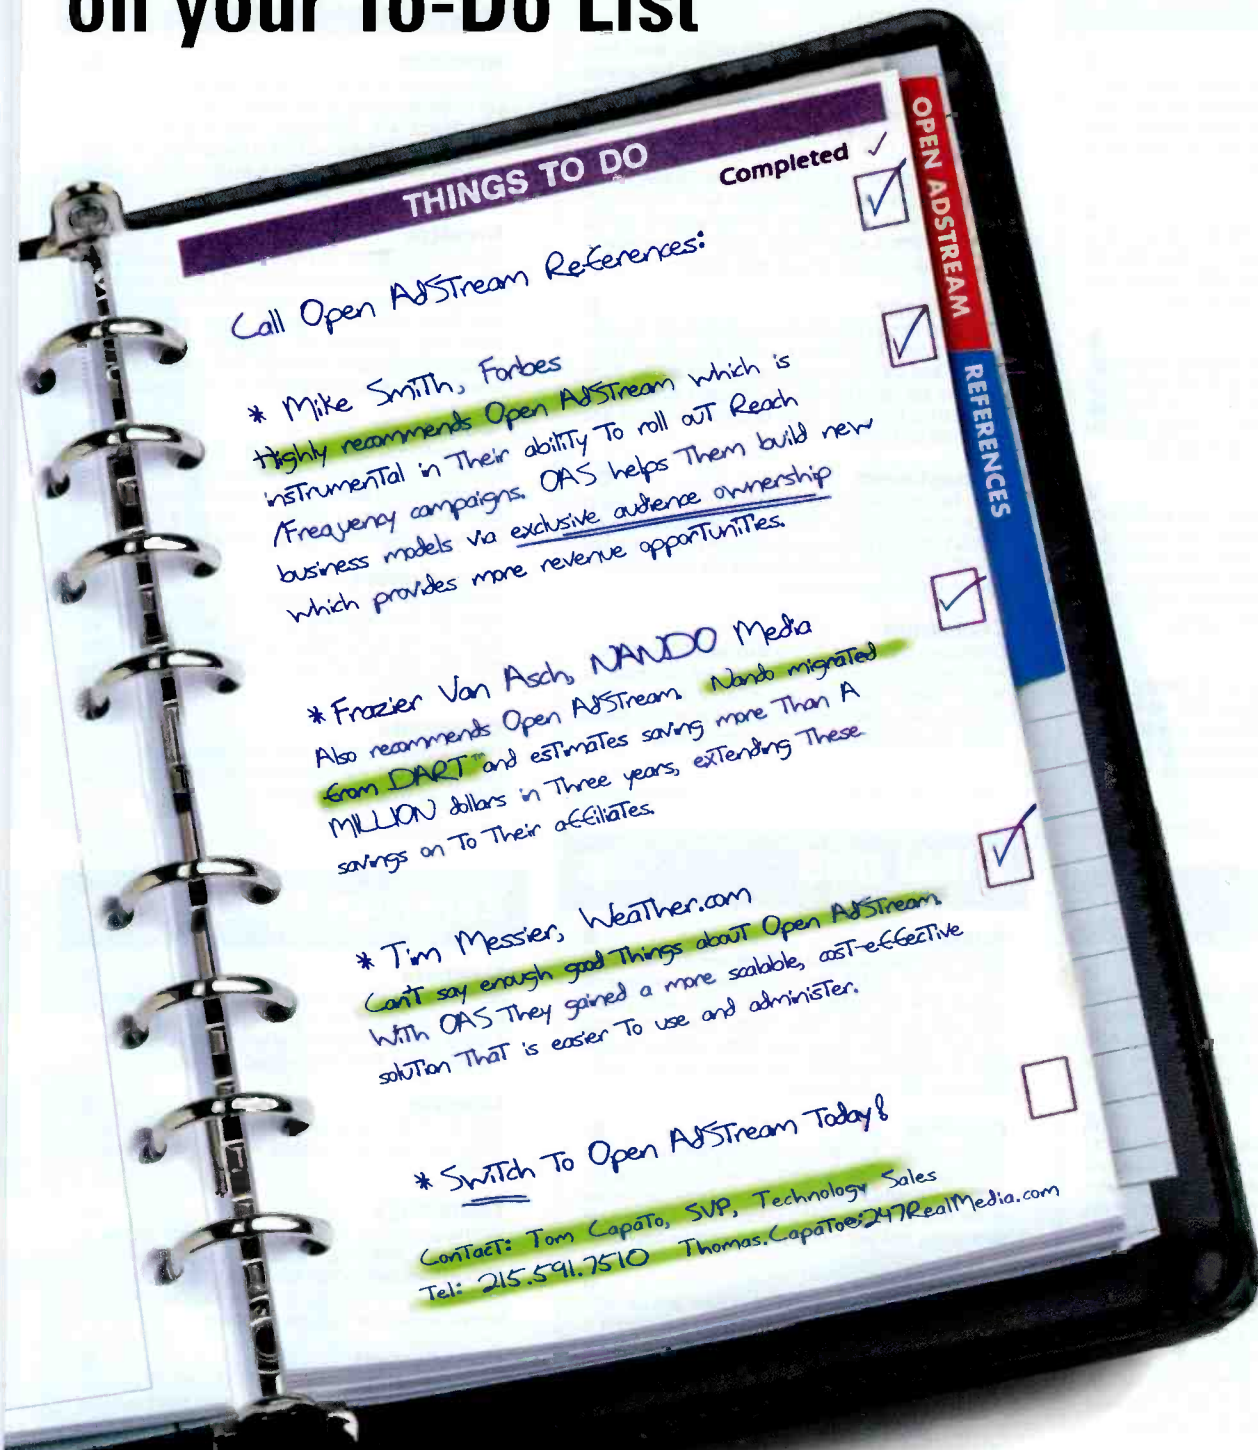 on your To-Do List
THINGS TO DO
Completed ✓
OPEN ADSTREAM
REFERENCES
Call Open AdStream References:
* Mike Smith, Forbes
Highly recommends Open AdStream which is
instrumental in their ability to roll out Reach
/Frequency campaigns. OAS helps them build new
business models via exclusive audience ownership
which provides more revenue opportunities.
* Frazier Van Asch, NANDO Media
Also recommends Open AdStream. Nando migrated
from DART™ and estimates saving more than A
MILLION dollars in three years, extending these
savings on to their affiliates.
* Tim Messier, Weather.com
Can't say enough good things about Open AdStream.
With OAS they gained a more scalable, cost-effective
solution that is easier to use and administer.
* Switch to Open AdStream Today!
Contact: Tom Capato, SVP, Technology Sales
Tel: 215.591.7510 Thomas.Capato@247RealMedia.com